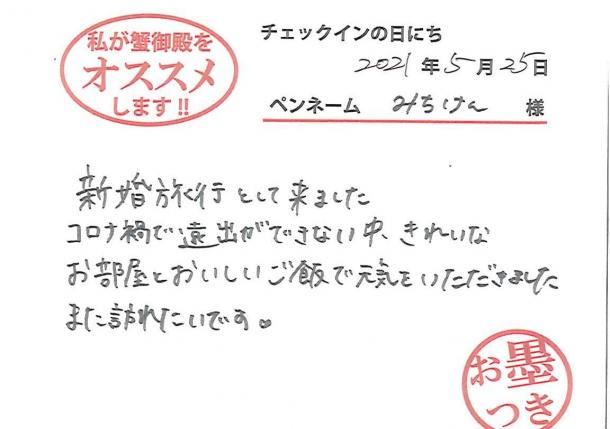 私が蟹御殿を
オススメ
します!!
チェックインの日にち
2021年5月25日
ペンネーム みちけん 様
新婚旅行として来ました
コロナ禍で遠出ができない中、きれいな
お部屋とおいしいご飯で元気をいただきました
また訪れたいです。
お墨
つき